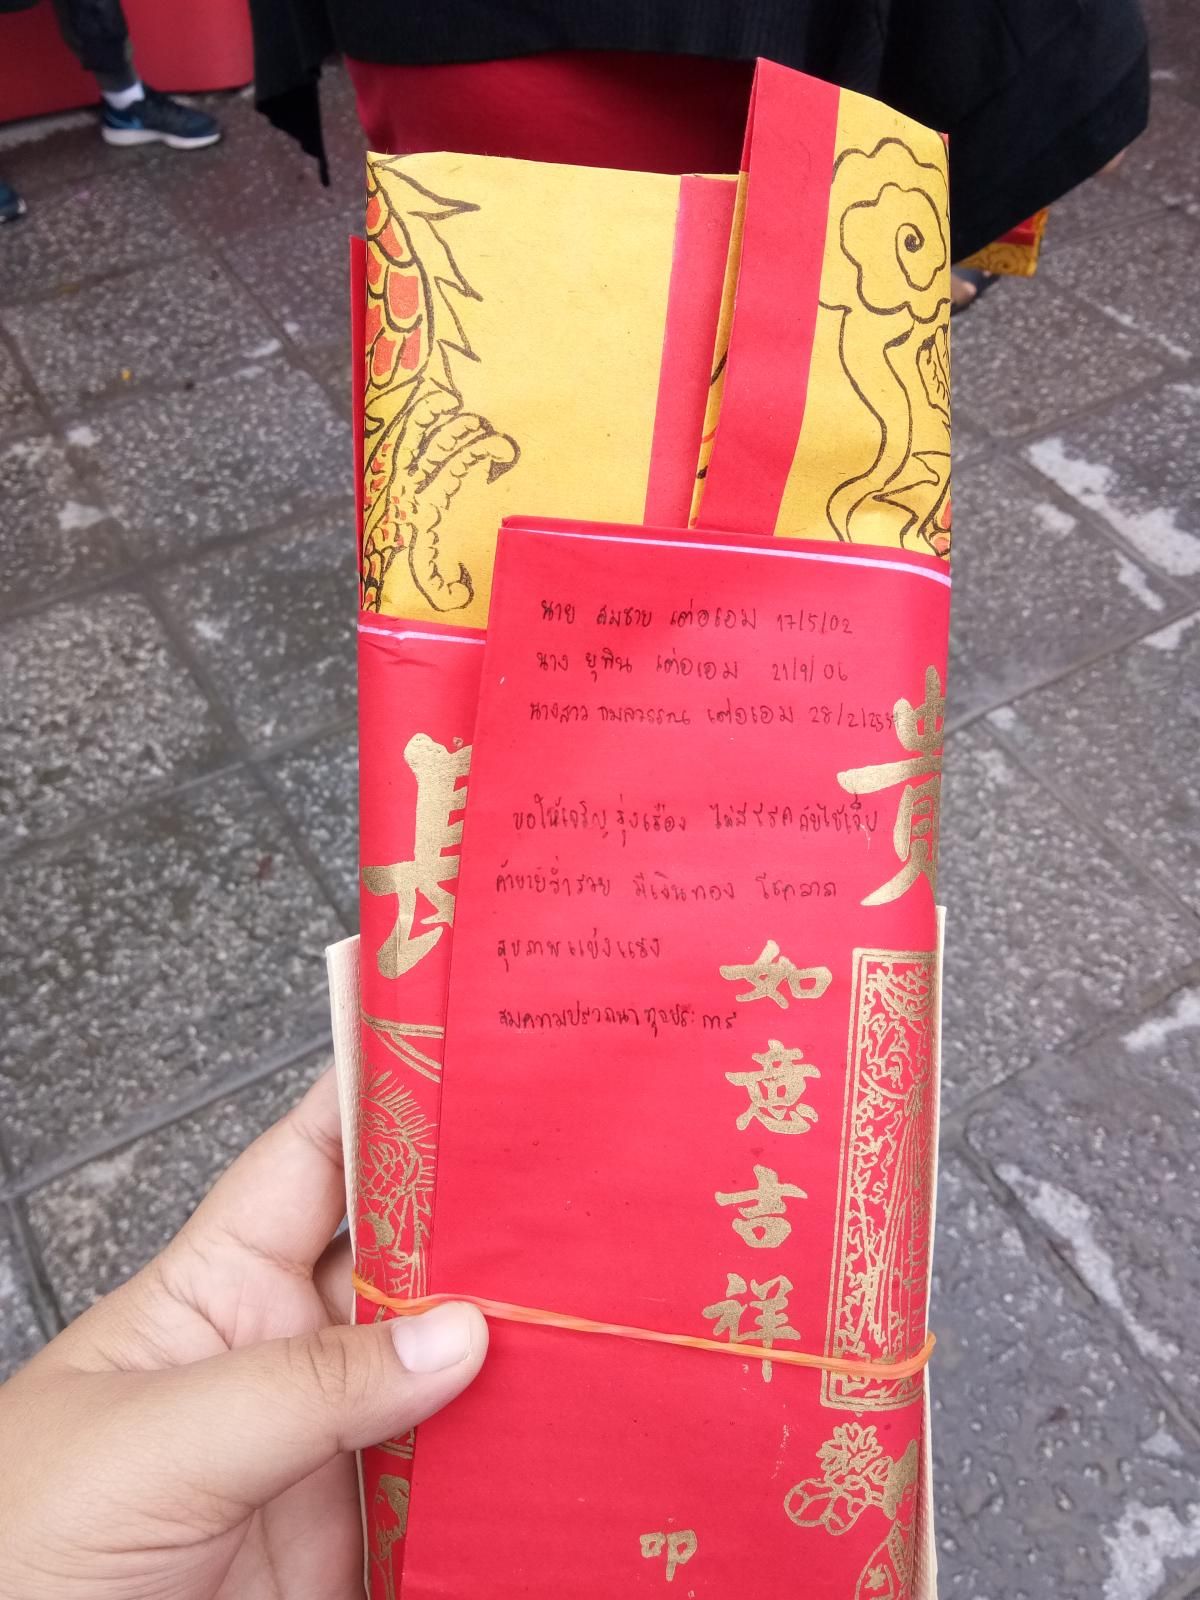 นาย สมชาย เต่อเอม 17/5/02
นาง ยุพิน เต่อเอม 21/9/06
นางสาว กมลวรรณ เต่อเอม 28/2/
ขอให้เจริญรุ่งเรือง ไม่มีโรคภัยไข้เจ็บ
ค้าขายร่ำรวย มีเงินทอง โชคลาภ
สุขภาพแข็งแรง
สมความปรารถนาทุกประการ
長
貴
如意吉祥
叩